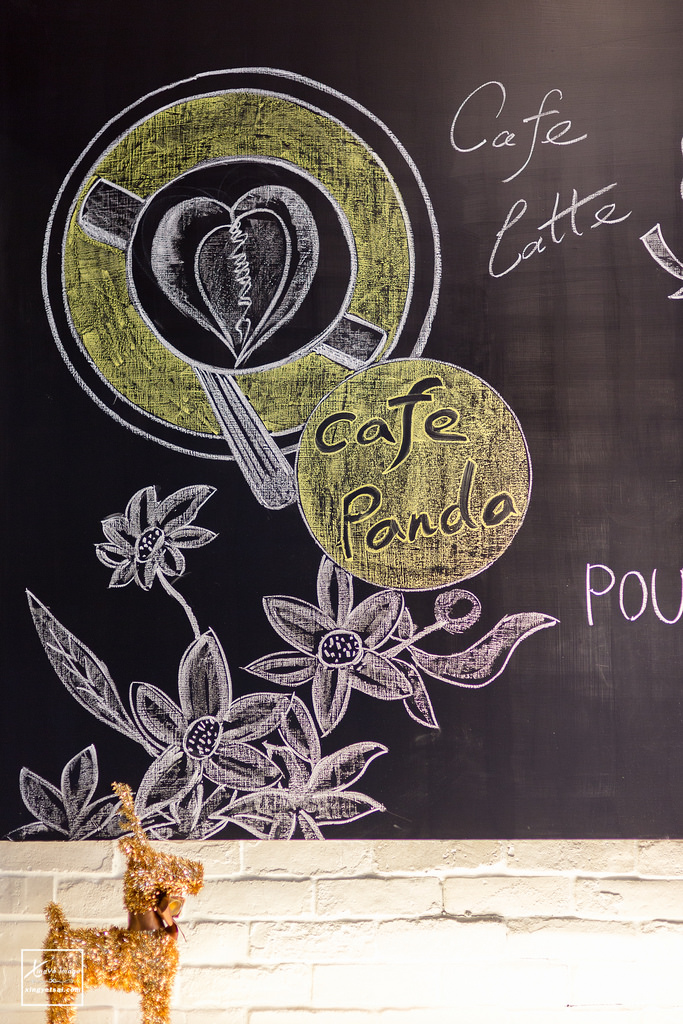 Cafe
Latte
cafe
Panda
POU